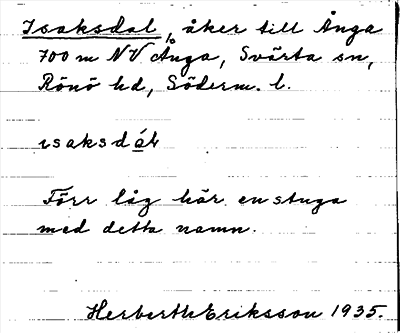 Isaksdal, åker till Ånga
700 m NV Ånga, Svärta sn,
Rönö hd, Söderm. l.
isaksdál
Förr låg här en stuga
med detta namn.
Herberth Eriksson 1935.